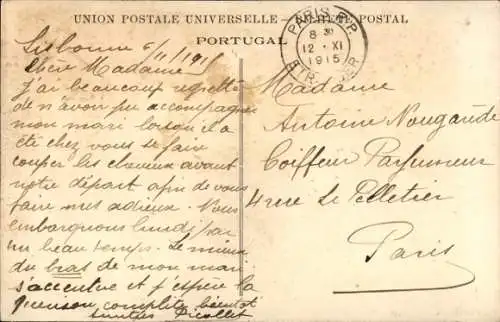 UNION POSTALE UNIVERSELLE — BILHETE POSTAL
PORTUGAL
PARIS R.P.
8 30
12 · XI
1915
ETRANGER
Lisbonne 6/11/1915
Chère Madame
J'ai beaucoup regretté
de n'avoir pu accompagner
mon mari lorsqu'il a
été chez vous se faire
couper les cheveux avant
notre départ afin de vous
faire mes adieux. Nous
embarquons lundi par
un beau temps. Le mieux
du bras de mon mari
s'accentue et j'espère la
guérison complète bientôt
Picollet
Madame
Antoine Nougarède
Coiffeur Parfumeur
4 rue Le Pelletier
Paris